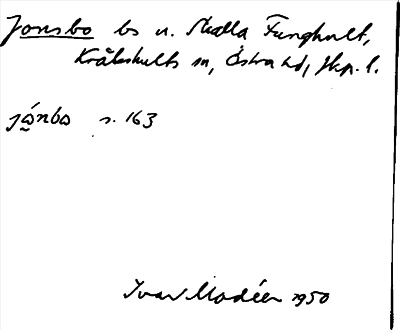 Jonsbo bs u. Skalla Funghult,
Kråkshults sn, Östra hd, Jkp. l.
jọ́nbo s. 163
Ivar Modéer 1950